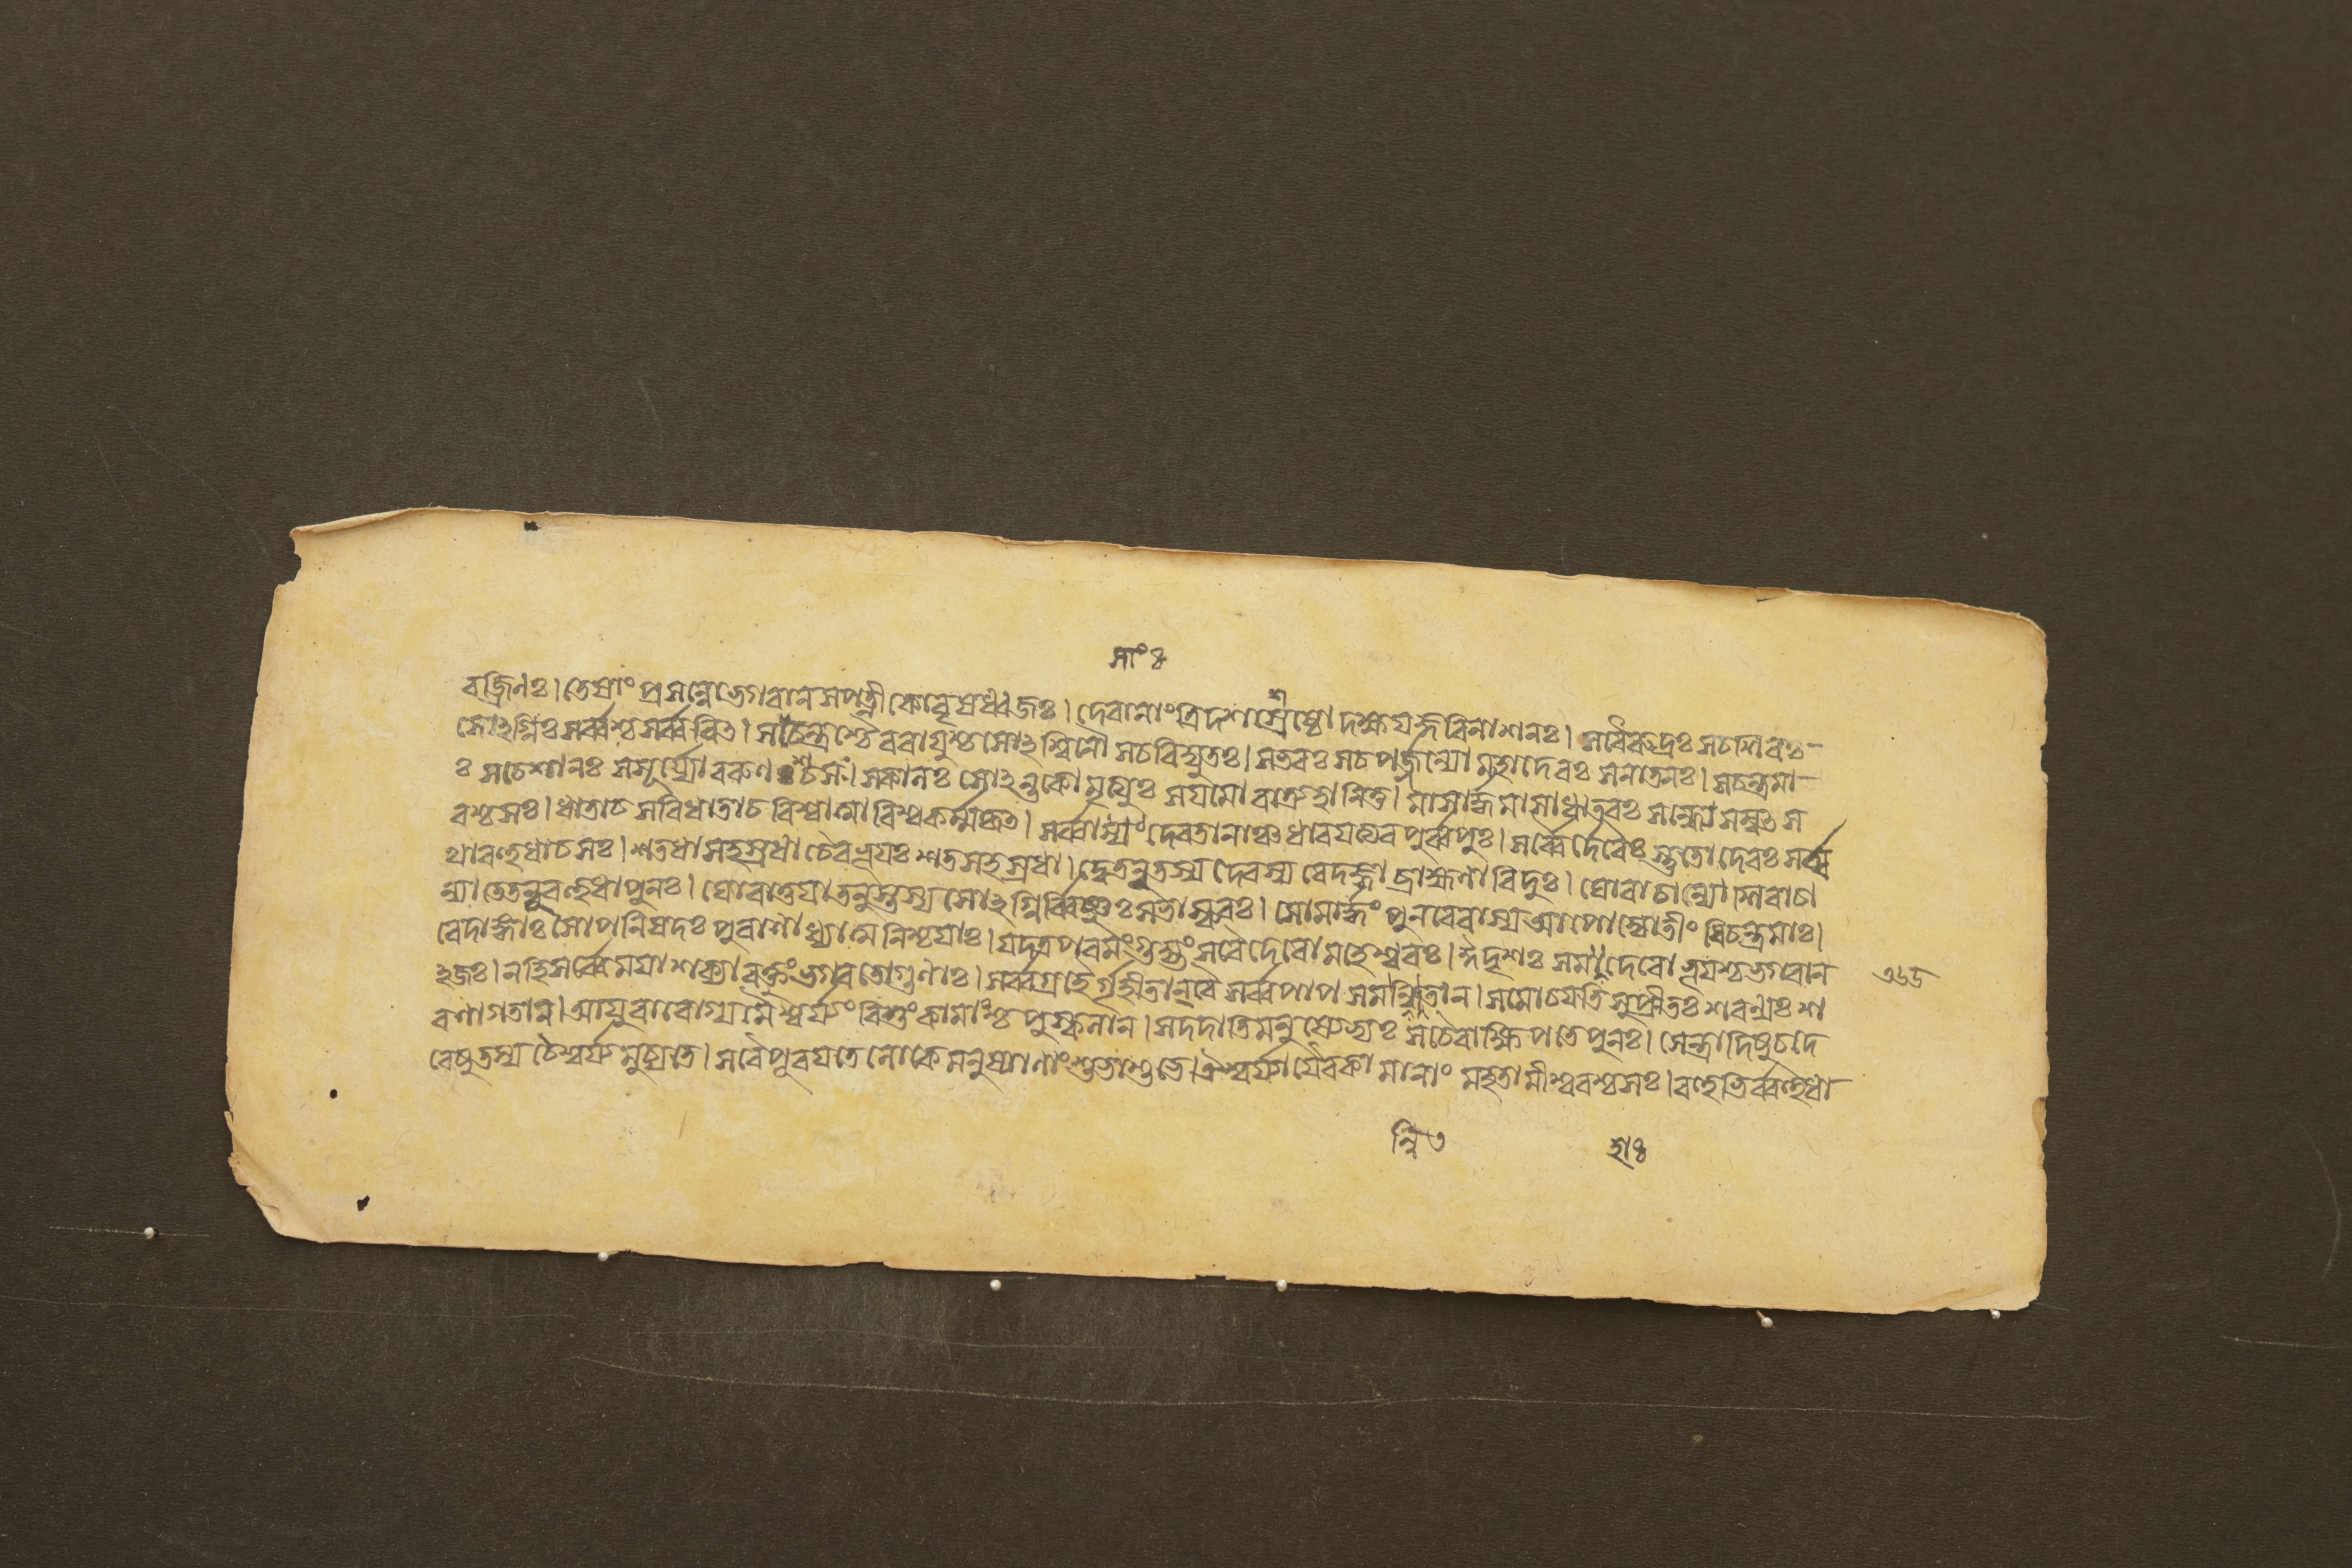 সাং ৪
বজ্রিণঃ। তেষাং প্রসন্নোভগবান সপত্নীকোবৃষধ্বজঃ। দেবানাং ত্রিদশশ্রেষ্ঠো দক্ষযজ্ঞবিনাশনঃ। সবৈরুদ্রঃ সচশিবঃ
সোঽগ্নিঃ সর্ব্বশ্চ সর্ব্ববিত। সচেন্দ্রশ্চৈববাযুশ্চ সোঽশ্বিনৌ সচবিদ্যুতঃ। সভবঃ সচপর্জ্জন্যো মহাদেবঃ সনাতনঃ। সচন্দ্রমা
ঃ সচেশানঃ সসূর্য্যোবরুণশ্চসঃ। সকালঃ সোঽন্তকোমৃত্যুঃ সযমো রাত্র্যহানিতু। মাসার্দ্ধমাসাঋতবঃ সন্ধ্যে সম্বৎস
রশ্চসঃ। ধাতাচ সবিধাতাচ বিশ্বাত্মাবিশ্বকর্ম্মকৃত। সর্ব্বাসাং দেবতানাঞ্চ ধারযত্যবপুর্ব্বপুঃ। সর্ব্বৈর্দেবৈঃ স্তুতোদেবঃ সর্ব্ব
থাবহুধাচসঃ। শতধাসহস্রধাচৈবভূযঃ শতসহস্রধা। দ্বেতনূতস্য দেবস্য বেদজ্ঞাব্রাহ্মণাবিদুঃ। ঘোরাচান্যাশিবাচা
ন্যাতেতনূবহুধাপুনঃ। ঘোরাতুযাতনুস্তস্য সোঽগ্নির্ব্বিষ্ণুঃ সভাস্করঃ। সৌম্যার্দ্ধং পুনরেবাস্য আপোজ্যোতীংষিচন্দ্রমাঃ।
বেদাঙ্গাঃ সোপনিষদঃ পুরাণাধ্যাত্মনিশ্চযাঃ। যদত্রপরমংগুহ্যং সবৈদেবোমহেশ্বরঃ। ঈদৃশঃ সমহাদেবোভূযশ্চভগবান
ঽজঃ। নহিসর্ব্বেমযাশক্যাবক্তুং ভগবতোগুণাঃ। সর্ব্বগ্রহৈর্গৃহীতান্বৈ সর্ব্বপাপসমন্বিতান। সমোচযতি সুপ্রীতঃ শরণ্যঃ শ
রণাগতান। আযুরারোগ্যমৈশ্বর্য্যং বিত্তংকামাংশ্চ পুষ্কলান। সদদাতিমনুষ্যেভ্যঃ সচৈবাক্ষিপতেপুনঃ। সেন্দ্রাদিষুচদে
বেষুতস্য চৈশ্বর্য্যমুচ্যতে। সবৈপূরযতেলোকে মনুষ্যাণাংশুভাশুভে। ঐশ্বর্য্যাচ্চৈবকামানাং মহতামীশ্বরশ্চসঃ। বহুভির্ব্বহুধা
৩৬৮
ন্বি ৩
হা৪